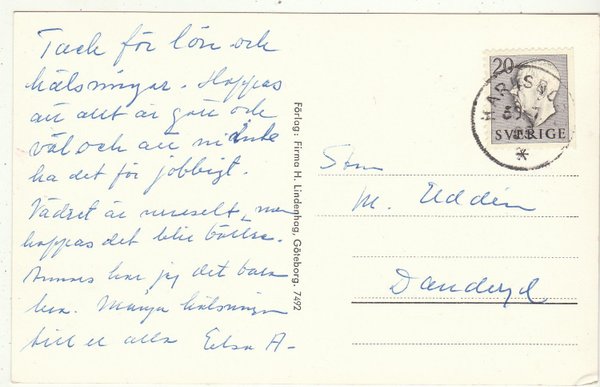 Tack för lön och
hälsningar. Hoppas
att allt är gott och
väl och att ni inte
ha det för jobbigt.
Vädret är ruskigt, men
hoppas det blir bättre.
Annars har jag det bara
bra. Många hälsningar
till er alla Elsa A-
Förlag: Firma H. Lindenhag, Göteborg. 7492
20
SVERIGE
Stm
M. Uddén
Danderyd